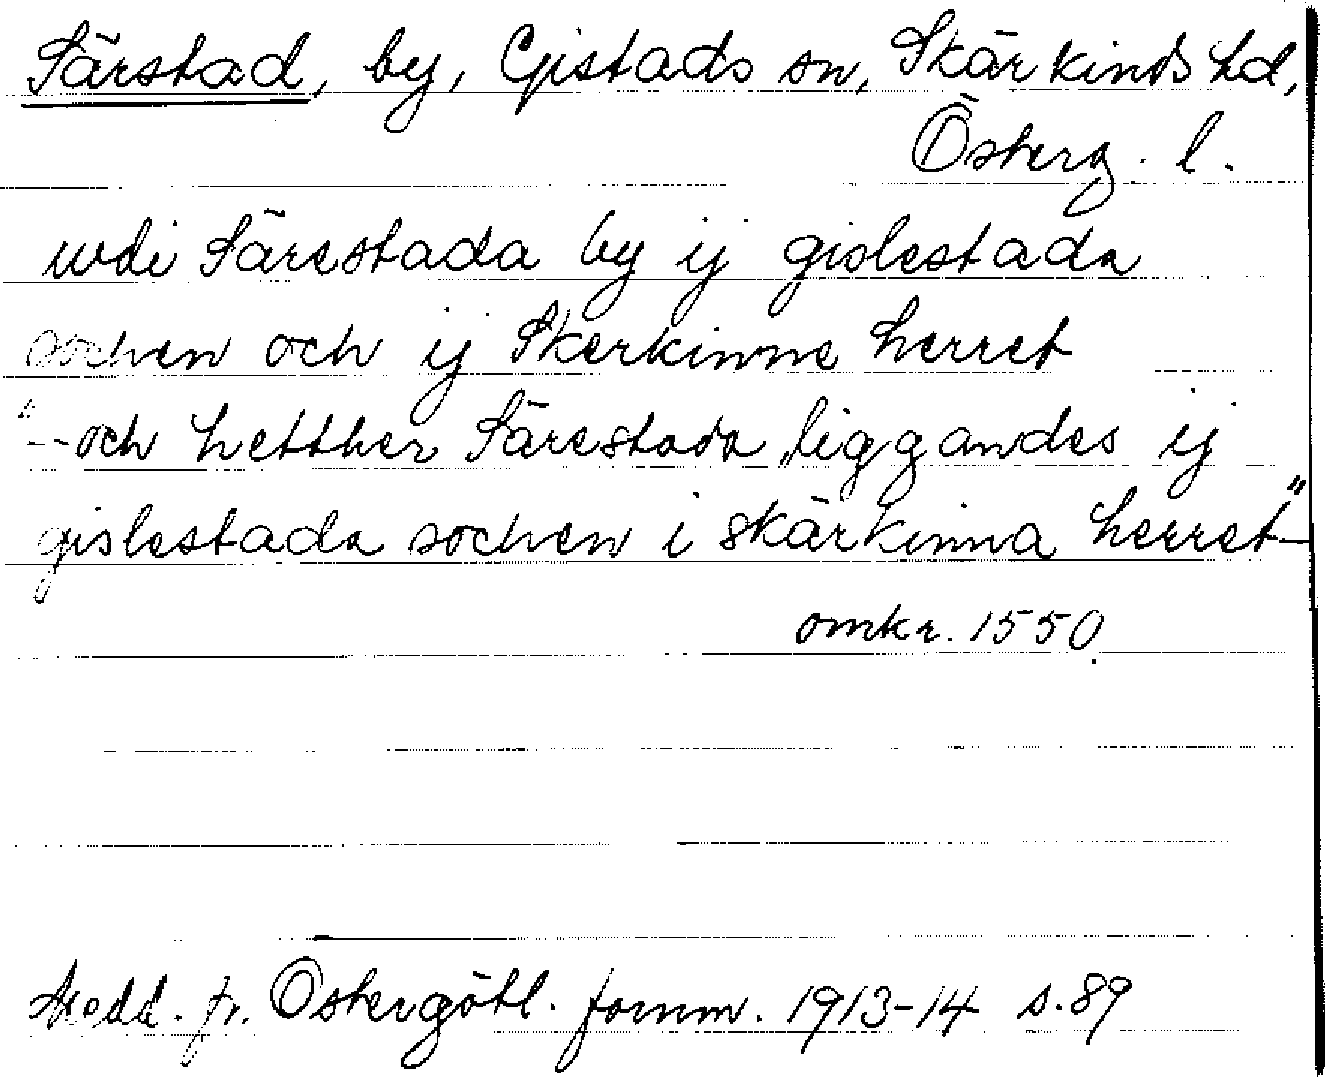 Särstad, by, Gistads sn, Skärkinds hd,
Österg. l.
wdi Särestada by ij gislestada
sochen och ij Skerkinne herret
"--och hetther Särestada liggandes ij
gislestada sochen i skärkinna herret"—
omkr. 1550.
Medd. fr. Östergötl. fornm. 1913-14 s. 89